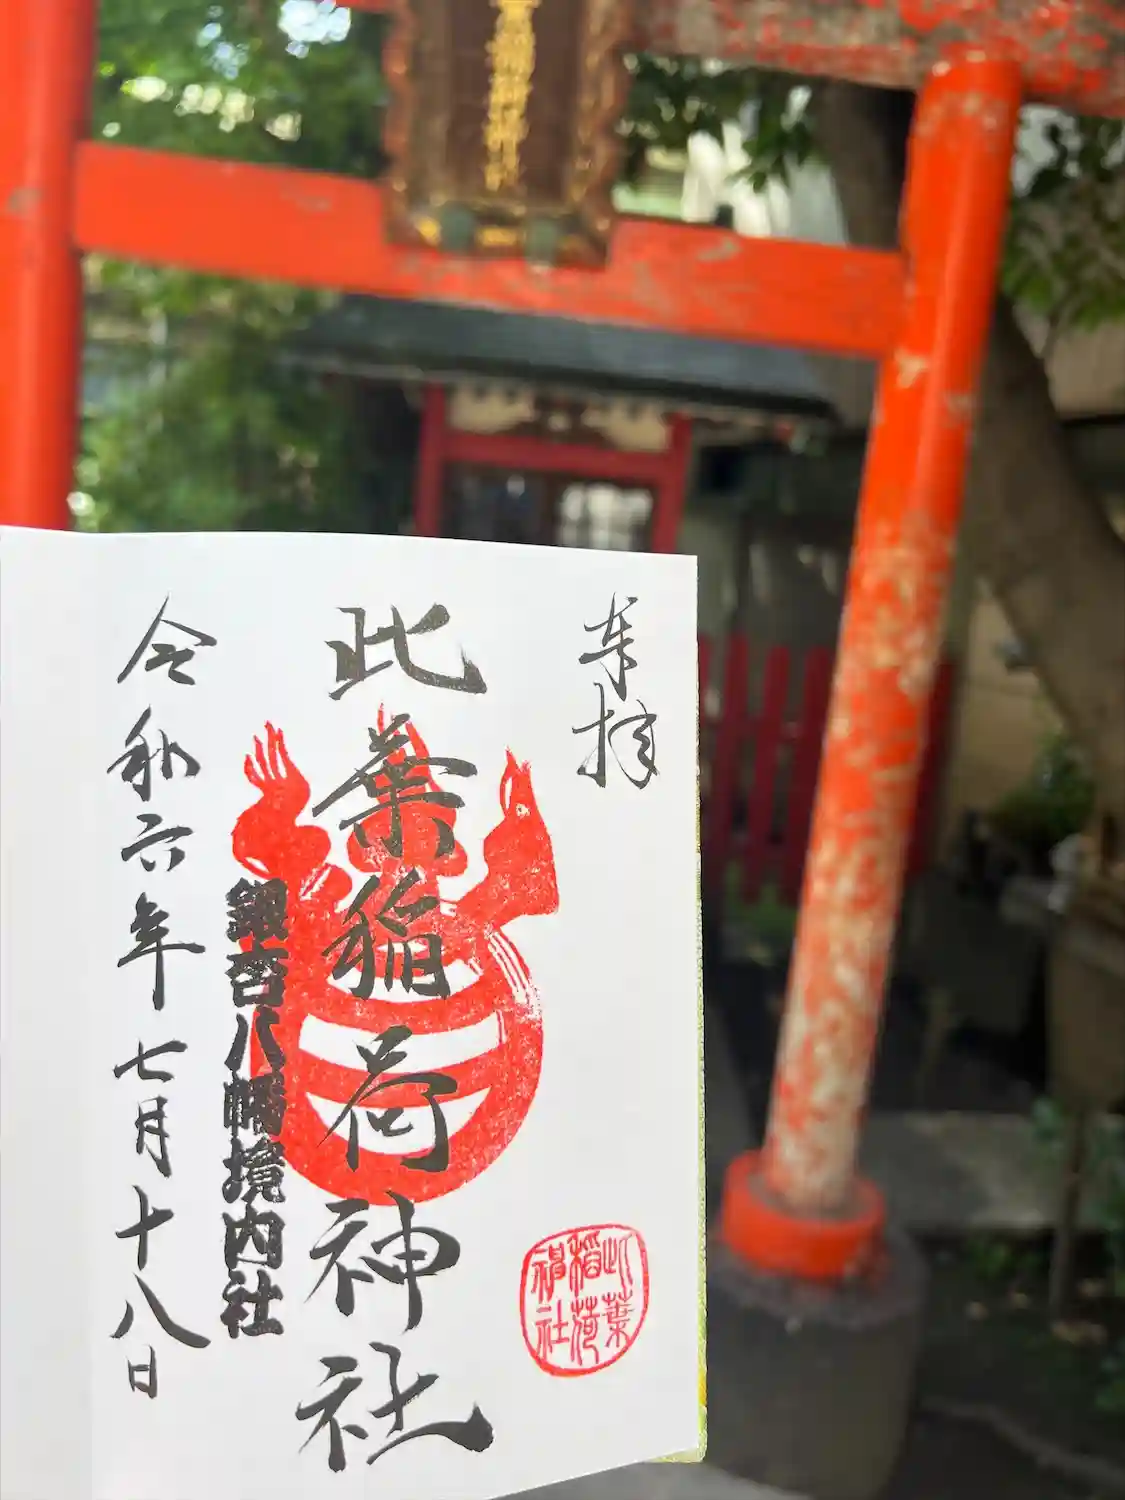 奉拝
此葉稲荷神社
銀杏八幡境内社
令和六年七月十八日
此葉
稲荷
神社